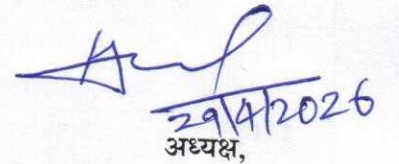 29/4/2026
अध्यक्ष,